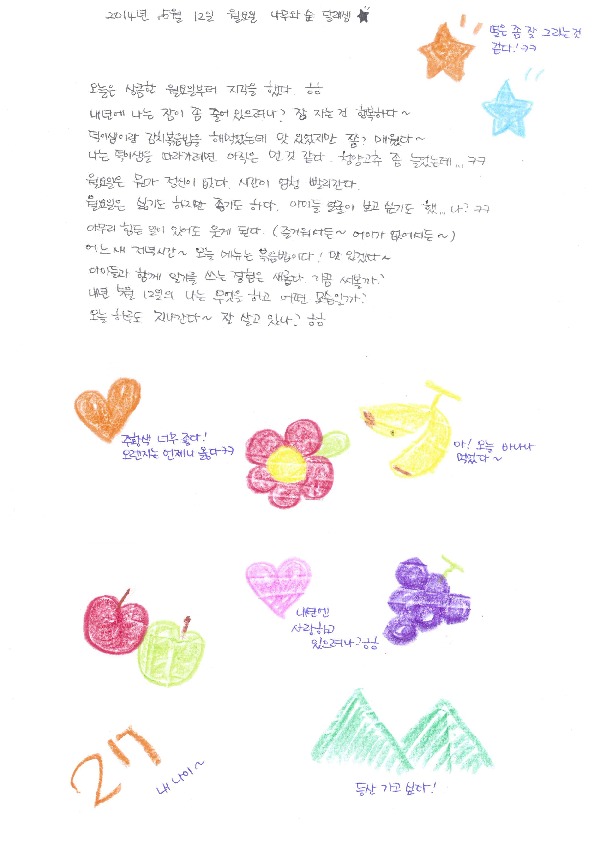 2014년 5월 12일 월요일 나무와 숲 달래샘
별은 좀 잘 그리는 것
같다! ㅋㅋ
오늘은 상큼한 월요일부터 지각을 했다. ㅎㅎ
내년에 나는 잠이 좀 줄어 있으려나? 잠 자는 건 행복하다~
떡이샘이랑 김치볶음밥을 해먹었는데 맛있었지만 쫌? 매웠다~
나는 떡이샘을 따라가려면 아직은 먼 것 같다. 청양고추 좀 늘었는데... ㅋㅋ
월요일은 뭔가 정신이 없다. 시간이 엄청 빨리간다.
월요일은 싫기도 하지만 좋기도 하다. 아이들 얼굴이 보고 싶기도 했...나? ㅋㅋ
아무리 힘든 일이 있어도 웃게 된다. (즐거워서든~ 어이가 없어서든~)
어느새 저녁시간~ 오늘 메뉴는 볶음밥이다! 맛있겠다~
아이들과 함께 일기를 쓰는 경험은 새롭다. 가끔 써볼까?
내년 5월 12일의 나는 무엇을 하고 어떤 모습일까?
오늘 하루도 지나간다~ 잘 살고 있나? ㅎㅎ
주황색 너무 좋다!
오렌지는 언제나 옳다ㅋㅋ
아! 오늘 바나나
먹었다~
내년엔
사랑하고
있으려나? ㅎㅎ
27
내 나이~
등산 가고 싶다!